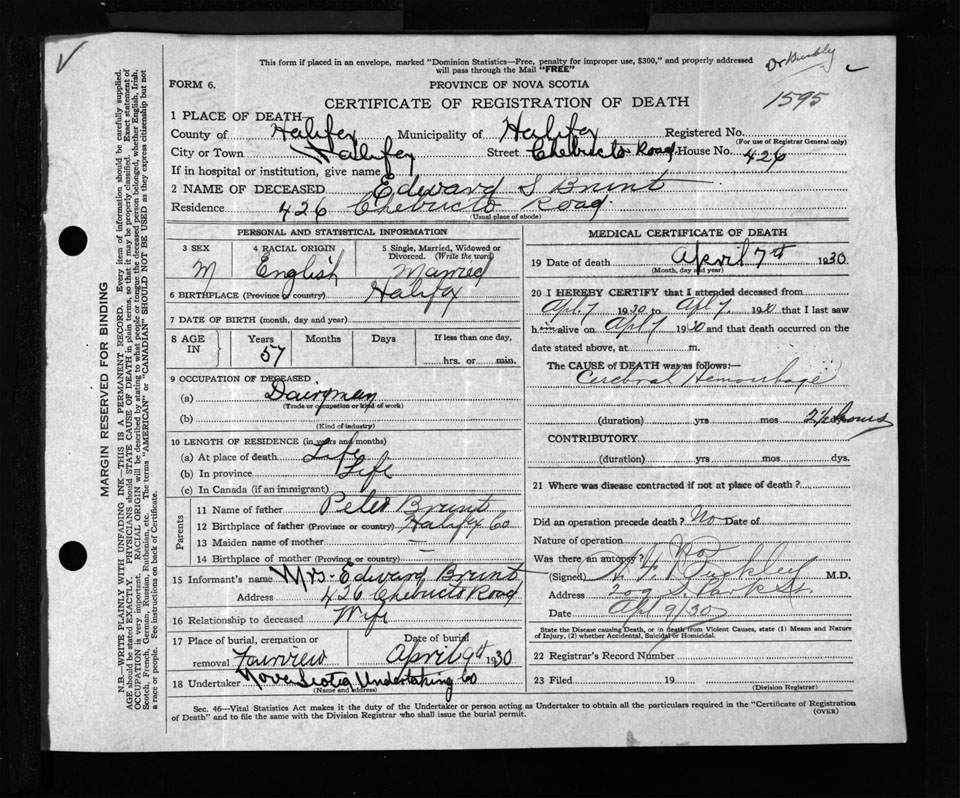 This form if placed in an envelope, marked "Dominion Statistics—Free, penalty for improper use, $300," and properly addressed
will pass through the Mail "FREE"
FORM 6.
PROVINCE OF NOVA SCOTIA
CERTIFICATE OF REGISTRATION OF DEATH
1595
1 PLACE OF DEATH—
County of Halifax Municipality of Halifax Registered No.
(For use of Registrar General only)
City or Town Halifax Street Chebucto Road House No. 426
If in hospital or institution, give name
2 NAME OF DECEASED Edward S Brunt
Residence 426 Chebucto Road.
(Usual place of abode)
PERSONAL AND STATISTICAL INFORMATION
3 SEX 4 RACIAL ORIGIN 5 Single, Married, Widowed or Divorced. (Write the word)
M English Married
6 BIRTHPLACE (Province or country) Halifax
7 DATE OF BIRTH (month, day and year)
8 AGE IN Years Months Days If less than one day,
57 hrs. or min.
9 OCCUPATION OF DECEASED
(a) Dairyman
(Trade or occupation or kind of work)
(b)
(Kind of industry)
10 LENGTH OF RESIDENCE (in years and months)
(a) At place of death Life
(b) In province Life
(c) In Canada (if an immigrant)
Parents
11 Name of father Peter Brunt
12 Birthplace of father (Province or country) Halifax Co
13 Maiden name of mother —
14 Birthplace of mother (Province or country) —
15 Informant's name Mrs. Edward Brunt
Address 426 Chebucto Road
16 Relationship to deceased Wife
17 Place of burial, cremation or removal Fairview
Date of burial April 9th 1930
18 Undertaker Nova Scotia Undertaking Co
(Name and address)
MEDICAL CERTIFICATE OF DEATH
19 Date of death April 7th 1930
(Month, day and year)
20 I HEREBY CERTIFY that I attended deceased from
Apl. 7 1930 to Apl 7 1930 that I last saw
him alive on Apl 7 1930 and that death occurred on the
date stated above, at m.
The CAUSE OF DEATH was as follows:—
Cerebral Hemorrhage
(duration) yrs mos hours
CONTRIBUTORY
(duration) yrs. mos dys.
21 Where was disease contracted if not at place of death?
Did an operation precede death? No Date of
Nature of operation
Was there an autopsy? No
(Signed) Buckley M.D.
Address 202 S. Park St.
Date Apl 9/30
State the Disease causing Death, or in Death from Violent Causes, state (1) Means and Nature
of Injury, (2) whether Accidental, Suicidal or Homicidal.
22 Registrar's Record Number
23 Filed 19
(Division Registrar)
Sec. 46—Vital Statistics Act makes it the duty of the Undertaker or person acting as Undertaker to obtain all the particulars required in the "Certificate of Registration
of Death" and to file the same with the Division Registrar who shall issue the burial permit.
(OVER)
MARGIN RESERVED FOR BINDING
N.B.—WRITE PLAINLY WITH UNFADING INK—THIS IS A PERMANENT RECORD. Every item of information should be carefully supplied.
AGE should be stated EXACTLY. PHYSICIANS should STATE CAUSE OF DEATH in plain terms, so that it may be properly classified. Exact statement of
OCCUPATION is very important. RACIAL ORIGIN will be described by stating to what people or tongue the deceased person belonged, whether English, Irish,
Scotch, French, German, Russian, Ruthenian, etc. The terms "AMERICAN" or "CANADIAN" SHOULD NOT BE USED as they express citizenship but not
a race or people. See instructions on back of Certificate.